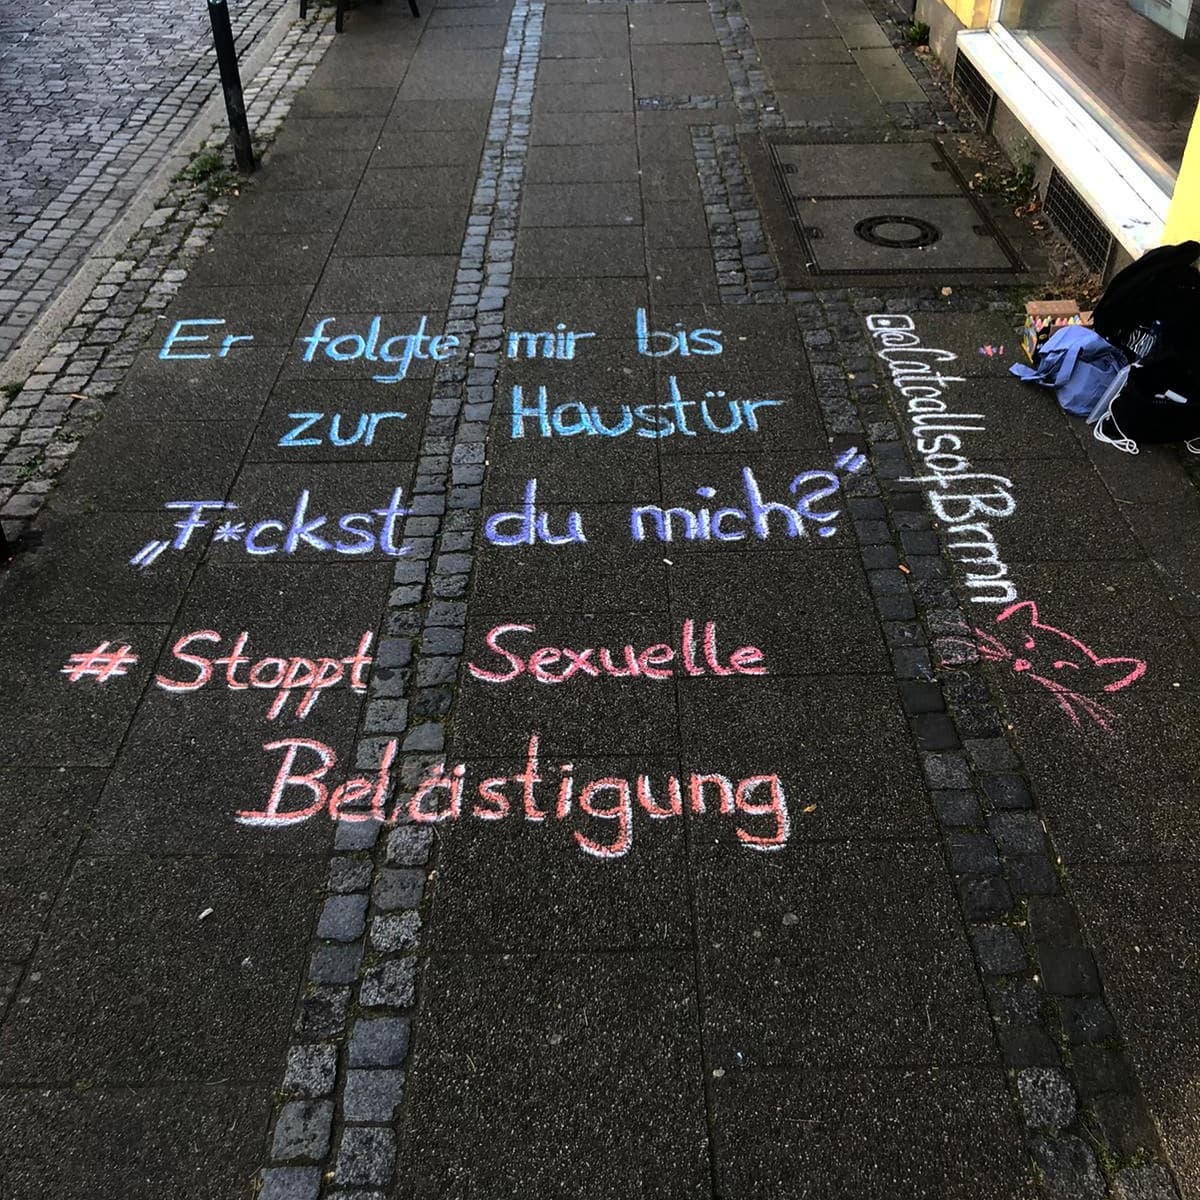 Er folgte mir bis
zur Haustür
„F*ckst du mich?“
#Stoppt Sexuelle
Belästigung
@CatcallsofBrmn